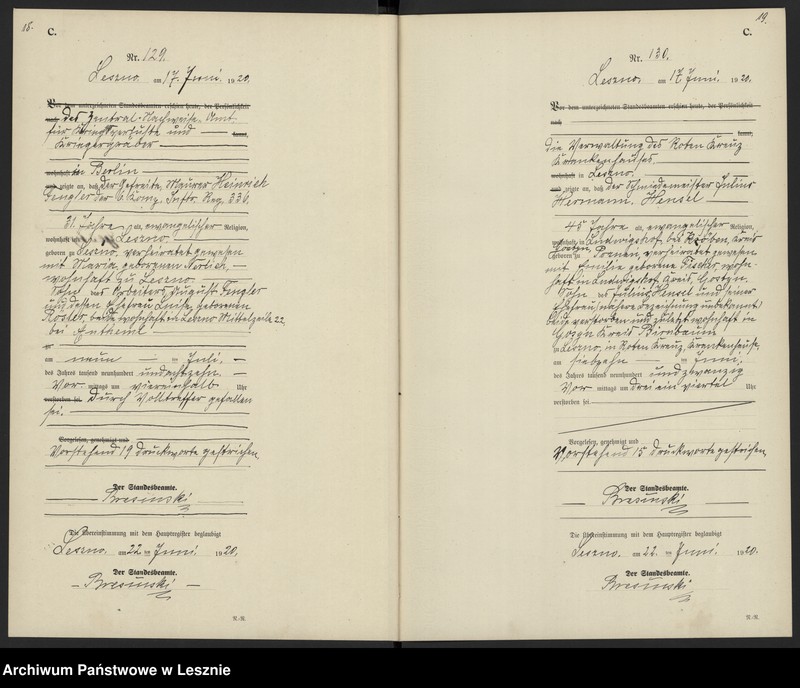 18.
C.
Nr. 129.
Leszno am 17. Juni 1920.
Vor dem unterzeichneten Standesbeamten erschien heute, der Persönlichkeit
nach
des Zentral-Nachweise-Amt
für Kriegsverluste und
kennt,
Kriegergräber
wohnhaft in Berlin
und zeigte an, daß der Gefreite, Maurer Heinrich
Fengler der 6. Komp. Inftr. Reg. 336,
31 Jahre alt, evangelischer Religion,
wohnhaft Leszno
geboren zu Leszno, verheiratet gewesen
mit Maria geborenen
wohnhaft zu Leszno
Sohn des Arbeiters August Fengler
und dessen Ehefrau geborenen
Rösler, beide wohnhaft in Leszno Mittelzeile 22,
bei
am neun ten Juli,
des Jahres tausend neunhundert undachtzehn
Vor mittags um vierein halb Uhr
verstorben sei. durch Volltreffer gefallen
sei.
Vorgelesen, genehmigt und
Vorstehend 19 Druckworte gestrichen
Der Standesbeamte.
Bresinski
Die Übereinstimmung mit dem Hauptregister beglaubigt
Leszno am 22 ten Juni 1920.
Der Standesbeamte.
Bresinski
N.-R.
19.
C.
Nr. 130.
Leszno, am 17 Juni 1920.
Vor dem unterzeichneten Standesbeamten erschien heute, der Persönlichkeit
nach
kennt,
die Verwaltung des Roten Kreuz
Krankenhauses
wohnhaft in Leszno
und zeigte an, daß der Schmiedemeister Julius
Hermann Hensel
45 Jahre alt, evangelischer Religion,
wohnhaft in Ludwigshof bei Kröben, Kreis
Gostyn
geboren zu Posen, verheiratet gewesen
mit Emilie geborene Fischer, wohn-
haft in Ludwigshof Kreis Gostyn.
Sohn des Julius Hensel und seiner
Ehefrau (nähere Bezeichnung unbekannt)
beide verstorben und zuletzt wohnhaft in
Kreis Birnbaum
in Leszno, im Roten Kreuz, Krankenhause,
am siebzehn ten Juni,
des Jahres tausend neunhundert und zwanzig
Vor mittags um drei ein viertel Uhr
verstorben sei.
Vorgelesen, genehmigt und
Vorstehend 15 Druckworte gestrichen
Der Standesbeamte.
Bresinski
Die Übereinstimmung mit dem Hauptregister beglaubigt
Leszno. am 22. ten Juni. 1920.
Der Standesbeamte.
Bresinski
N.-R.
Archiwum Państwowe w Lesznie